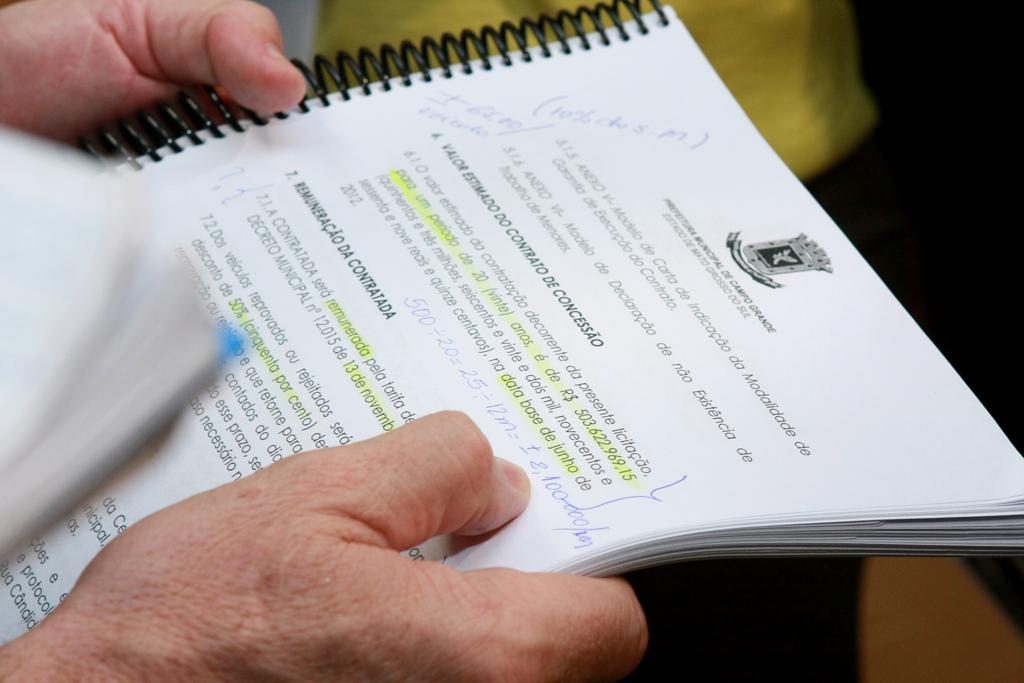 PREFEITURA MUNICIPAL DE CAMPO GRANDE
ESTADO DE MATO GROSSO DO SUL
5.1.5. ANEXO V– Modelo de Carta de Indicação da Modalidade de
Garantia de Execução do Contrato.
5.1.6. ANEXO VI– Modelo de Declaração de não Existência de
Trabalho de Menores.
(10% dos
6. VALOR ESTIMADO DO CONTRATO DE CONCESSÃO
6.1.O valor estimado da contratação decorrente da presente licitação,
para um período de 20 (vinte) anos, é de R$ 503.622.969,15
(quinhentos e três milhões, seiscentos e vinte e dois mil, novecentos e
sessenta e nove reais e quinze centavos), na data base de junho de
2012.
500÷20=25÷12m=±2,100.000/m
7. REMUNERAÇÃO DA CONTRATADA
? {
7.1.A CONTRATADA será remunerada pela tarifa de
DECRETO MUNICIPAL nº 12.015 de 13 de novembro
7.2.Dos veículos reprovados ou rejeitados será
desconto de 50% (cinquenta por cento) de
ou e que retorne para
contados do dia
do esse prazo, se
necessário n
da Ce
nicipal,
as.
ções e
e protocol
Rua Cândid